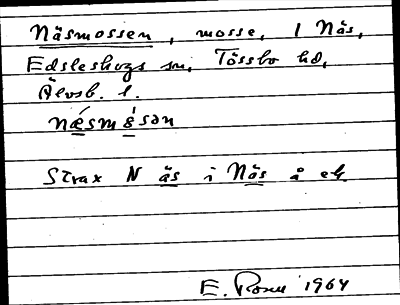 Näsmossen, mosse, 1 Näs,
Edsleskogs sn, Tössbo hd,
Älvsb. l.
næsmåsən
Strax N äs i Näs å ek
E. Rosen 1964